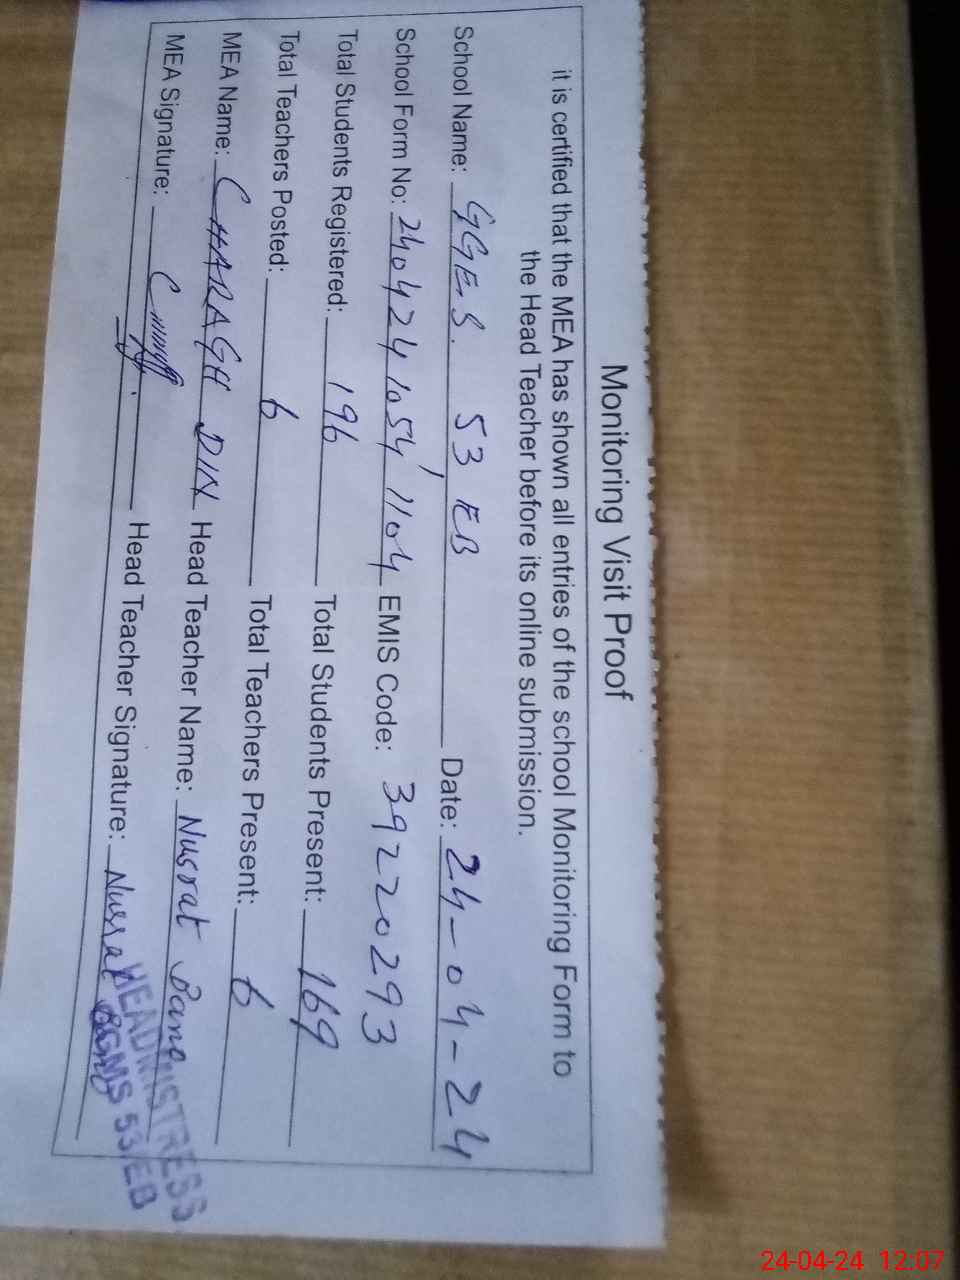 Monitoring Visit Proof
it is certified that the MEA has shown all entries of the school Monitoring Form to
the Head Teacher before its online submission.
School Name: GGES. 53 EB Date: 24-04-24
School Form No: 2404241054'1104 EMIS Code: 39220293
Total Students Registered: 196 Total Students Present: 169
Total Teachers Posted: 6 Total Teachers Present: 6
MEA Name: CHARAGH DIN Head Teacher Name: Nusrat Bano
MEA Signature: Head Teacher Signature: Nusrat Bano
HEADMISTRESS
GGMS 53/EB
24-04-24 12:07